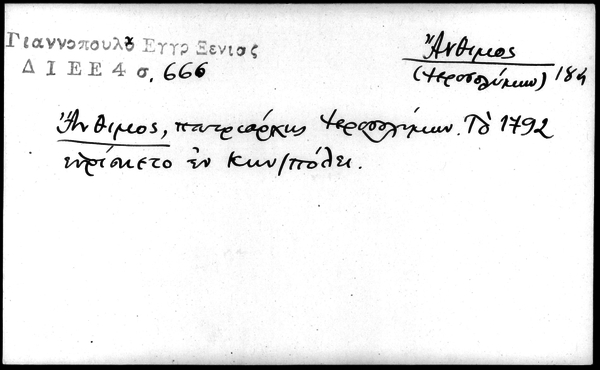 Γιαννοπουλȣ Εγγρ Ξενιας
Δ Ι Ε Ε 4 σ. 666
Ἄνθιμος
(Ἱεροσολύμων) 184
Ἄνθιμος, πατριάρχης Ἱεροσολύμων. Τὸ 1792
εὑρίσκετο ἐν Κων/πόλει.